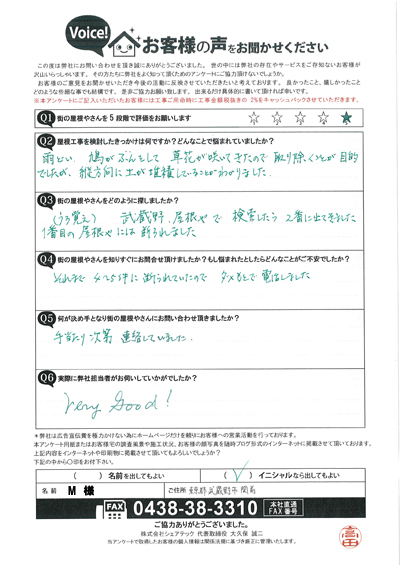 Voice!
お客様の声をお聞かせください
この度は弊社にお問い合わせを頂き誠にありがとうございました。世の中には弊社の存在やサービスをご存知ないお客様が
沢山いらっしゃいます。その方たちに弊社をよく知って頂くためのアンケートにご協力頂けないでしょうか。
お客様のご意見をお聞かせいただき今後の活動に反映させていただきたいと考えております。良かったこと、嬉しかったこと
どのような些細な事でも結構です。是非ご協力お願い致します。出来るだけ具体的に書いて頂ければ幸いです。
※本アンケートにご記入いただいたお客様には工事ご用命時に工事金額税抜きの2%をキャッシュバックさせていただきます。
Q1 街の屋根やさんを5段階で評価をお願いします
Q2 屋根工事を検討したきっかけは何ですか?どんなことで悩まれていましたか?
雨どい 鳩がふんをして 草花が咲いてきたので 取り除くことが目的
でしたが、縦方向に土が堆積していることがわかりました。
Q3 街の屋根やさんをどのように探しましたか?
(うろ覚え) 武蔵野、屋根やで 検索したら 2番に出てきました
1番目の屋根やには断られました
Q4 街の屋根やさんを知りすぐにお問合せ頂けますか?もし悩まれたとしたらどんなことがご不安でしたか?
それまで 4〜5件に断られていたので ダメもとで電話しました
Q5 何が決め手となり街の屋根やさんにお問い合わせ頂きましたか?
手当たり次第 連絡していました.
Q6 実際に弊社担当者がお伺いしていかがでしたか?
Very Good!
*弊社は広告宣伝費を極力かけない為にホームページだけを頼りにお客様への営業活動を行っております。
本アンケート用紙またはお客様宅の調査風景や施工状況、お客様の顔写真を随時ブログ形式のインターネットに掲載させて頂いております。
上記内容をインターネットや印刷物に掲載させて頂いてもよろしいでしょうか?
下記の中から〇印をお付下さい。
( )名前を出してもよい (✓)イニシャルなら出してもよい
名前 M 様 ご住所 東京都武蔵野市関前
FAX 0438-38-3310 本社直通 FAX番号
ご協力ありがとうございました。
株式会社シェアテック 代表取締役 大久保 誠二
※アンケートで取得したお客様の個人情報は関係法規に基づき厳正に管理いたします。